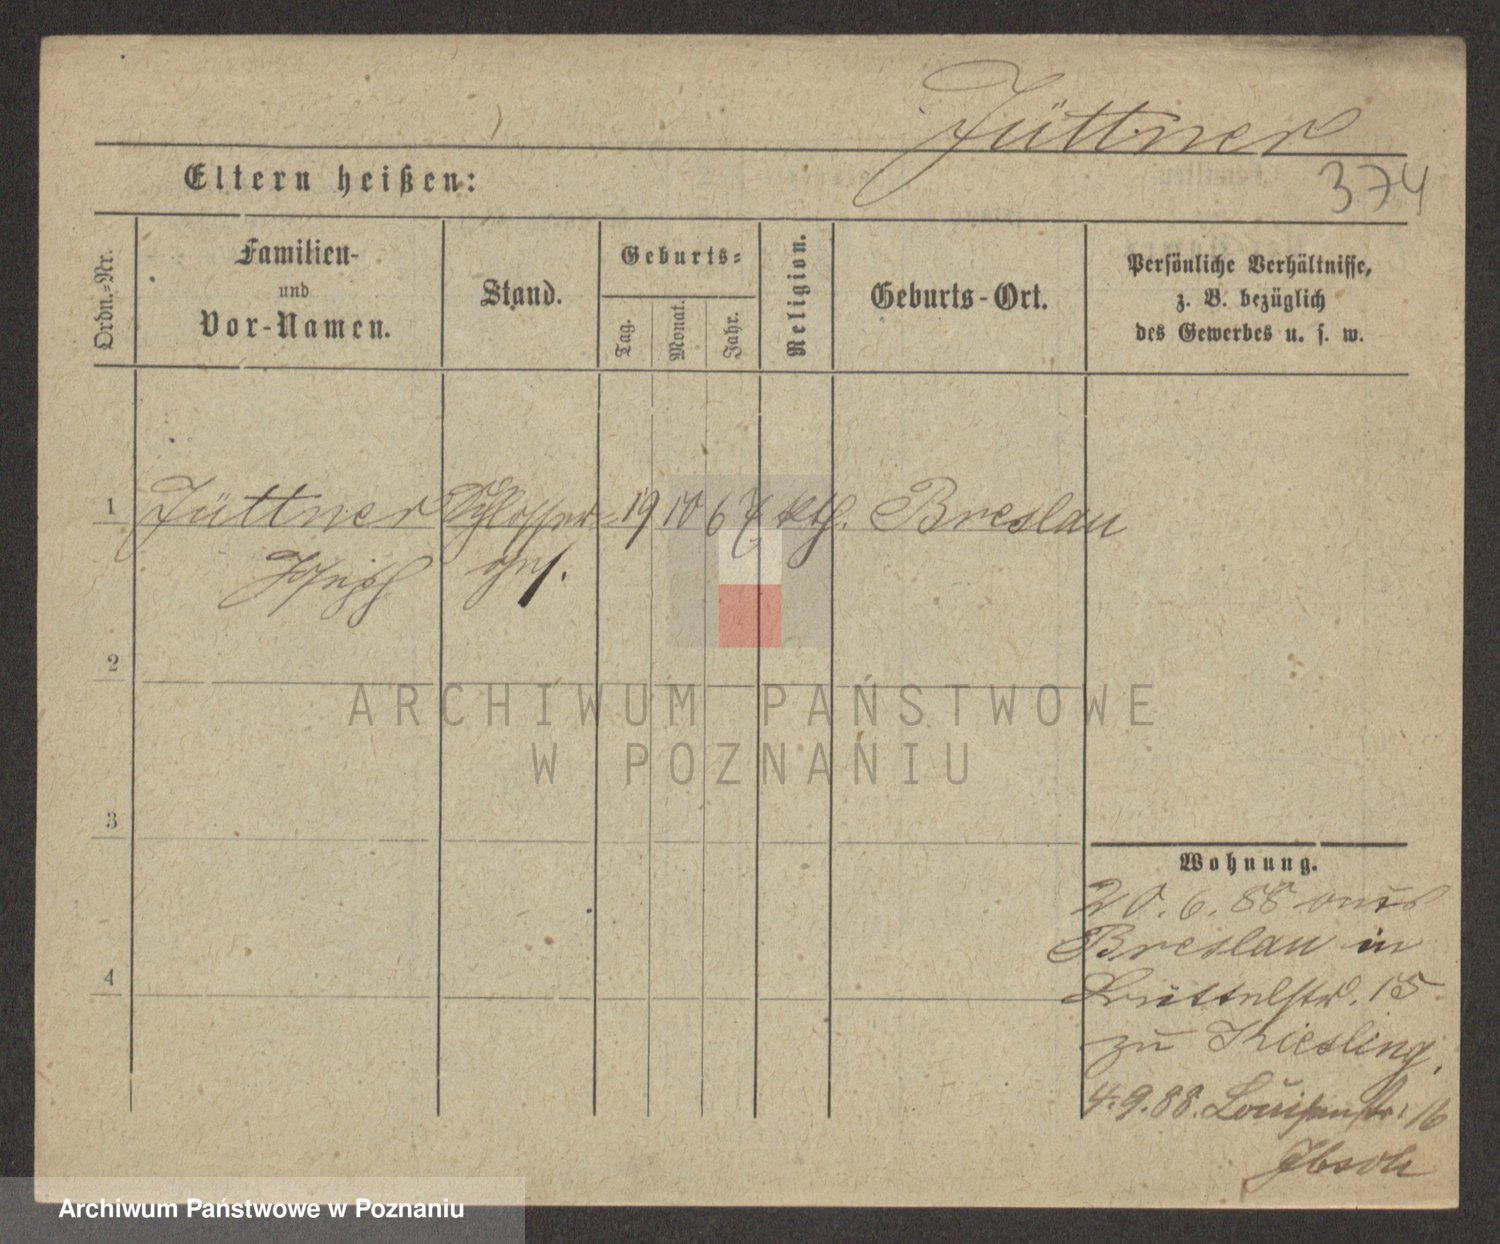 Jüttner
374
Eltern heißen:
Ordn.-Nr.
Familien-
und
Vor-Namen.
Stand.
Geburts-
Tag.
Monat.
Jahr.
Religion.
Geburts-Ort.
Persönliche Verhältnisse,
z. B. bezüglich
des Gewerbes u. s. w.
1 Jüttner Schlosser- 19 10 67 kth. Breslau
Joseph
2
3
4
Wohnung.
20.6.88 aus
Breslau in
15
zu Kiesling.
4.9.88. Louisenstr. 16
ARCHIWUM PAŃSTWOWE
W POZNANIU
Archiwum Państwowe w Poznaniu